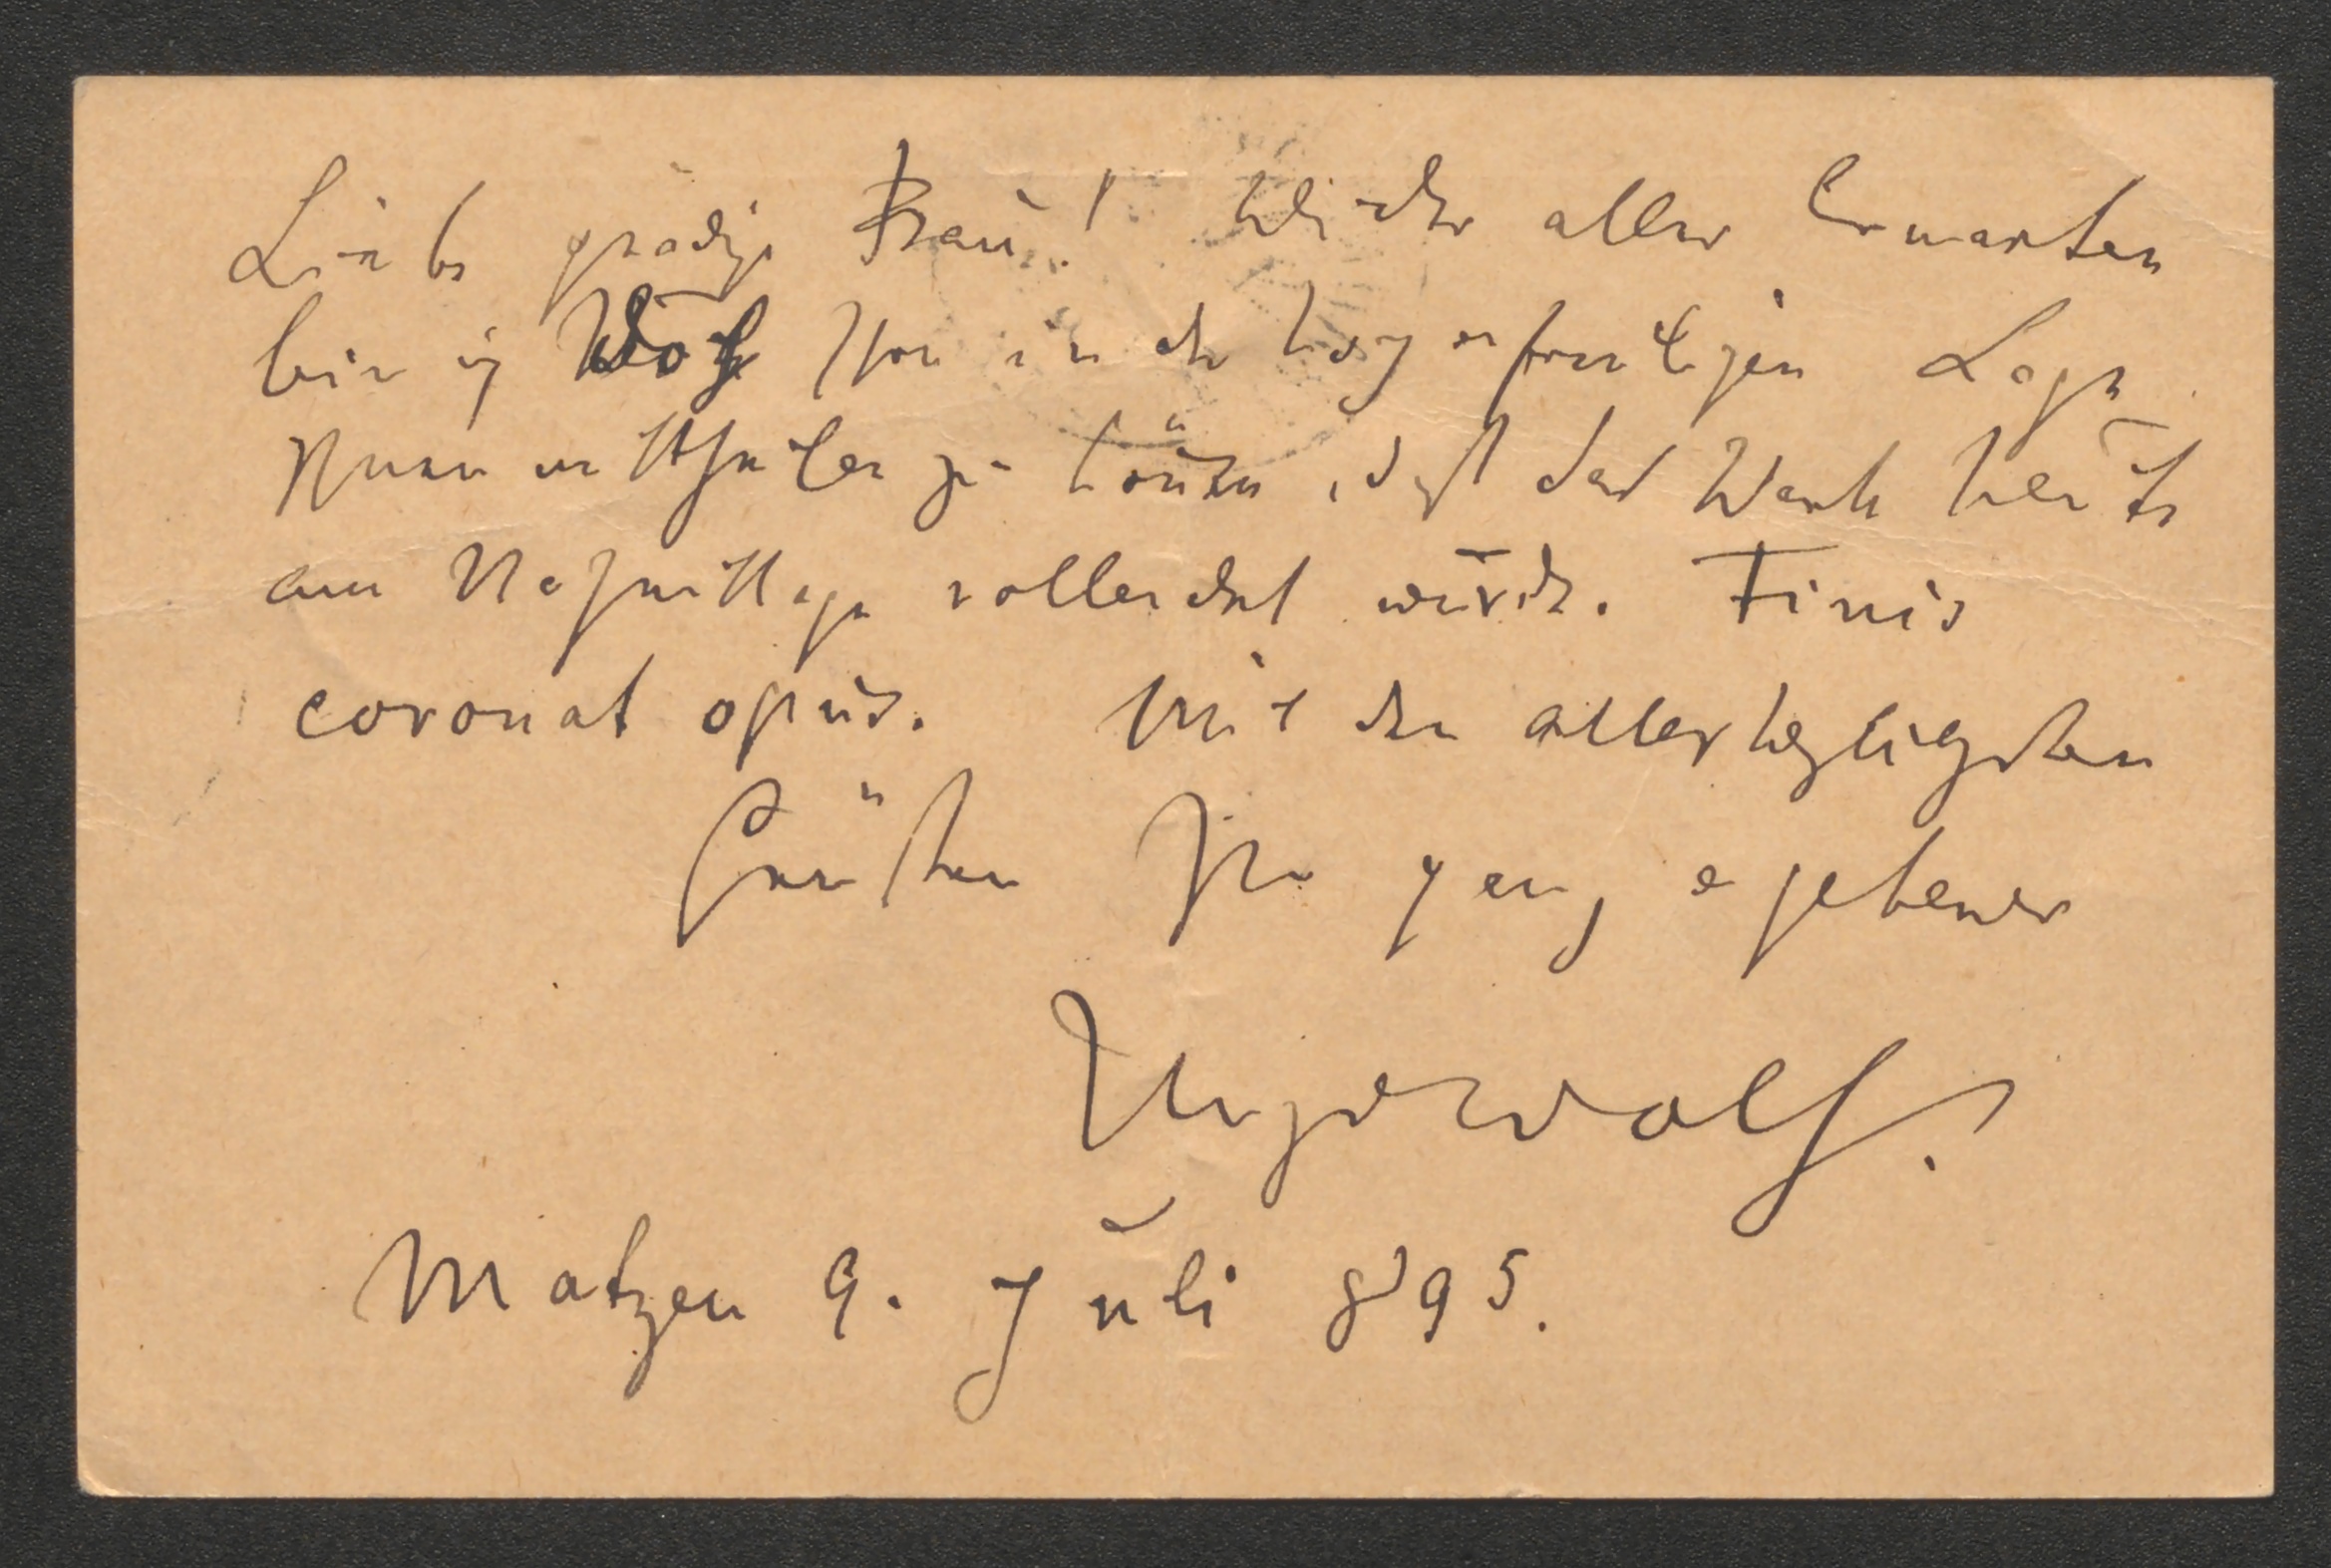 Liebe gnädige Frau! Wider aller Erwarten
bin ich doch schon in der hocherfreulichen Lage
Ihnen mittheilen zu können, daß das Werk heute
am Nachmittage vollendet wurde. Finis
coronat opus. Mit den allerherzlichsten
Grüßen Ihr ganz ergebener
Hugo Wolf.
Matzen 9. Juli 895.